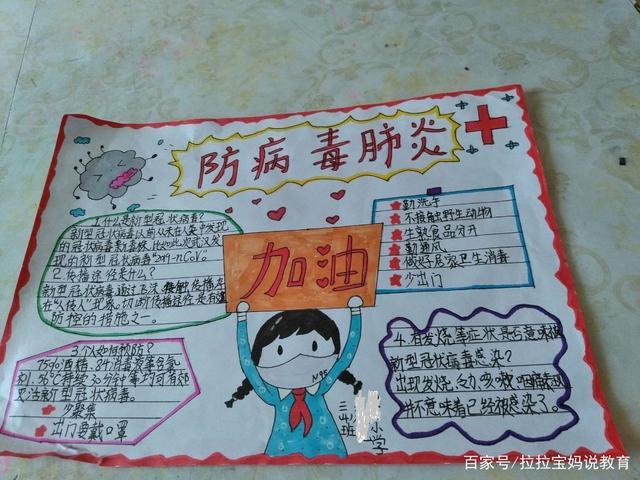 防病毒肺炎
1.什么是新型冠状病毒?
新型冠状病毒以前从未在人类中发现
的冠状病毒新毒株,比如此次武汉发
现的新型冠状病毒"2019-nCoV"
2.传播途径是什么?
新型冠状病毒通过飞沫、接触传播存
在"人传人"现象、切断传播途径是有
防控的措施之一。
3.个人如何预防?
75%酒精、84消毒液等含氯
剂、56℃持续30分钟等均可有效
灭活新型冠状病毒。
少聚集
出门要戴口罩
加油
N95
勤洗手
不接触野生动物
生熟食品分开
勤通风
做好居家卫生消毒
少出门
4.有发烧等症状是否意味被
新型冠状病毒感染?
出现发烧、乏力、咳嗽
并不意味着已经被感染了。
小学
班
百家号/拉拉宝妈说教育